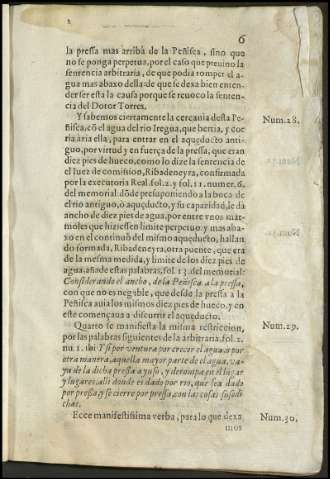 6
la pressa mas arriba de la Peñisca, sino que
no se ponga perpetua, por el caso que preuino la
sentencia arbitraria, de que podia romper el a-
gua mas abaxo della de que se dexa bien enten-
der ser esta la causa porque se reuoco la senten-
cia del Dotor Torres.
Y sabemos ciertamente la cercania desta Pe- Num.28.
ñisca, cō el agua del rio Iregua, que bertia, y cor
ria a ella, para entrar en el aqueducto anti-
guo, por virtud y en fuerça de la pressa, que eran
diez pies de hueco, como lo dize la sentencia de
el Iuez de comision, Ribadeneyra, confirmada
por la executoria Real. fol. 2. y fol. 11. numer. 6.
del memorial: dōde presuponiendo a la boca de
el rio antiguo, ò aqueducto, y su capacidad, le dà
ancho de diez pies de agua, por entre vnos mar-
moles que hiziessen limite perpetuo, y mas aba-
xo en el continuò del mismo aqueducto, hallan
do formada, Ribadeneyra, otra puente, que era
de la mesma medida, y limite de los diez pies de
agua. añade estas palabras, fol. 13. del memorial:
Considerando el ancho, de la Peñisca a la pressa,
con que no es negable, que desde la pressa a la
Peñisca auia los mismos diez pies de hueco, y en
este començaua a discurrir el aqueducto.
Quarto se manifiesta la misma restriccion, Num.29.
por las palabras siguientes de la arbitraria. fol. 2.
nu. 1. ibi Y si por ventura por crecer el agua, ò por
otra manera, aquella mayor parte de el agua, va-
ya de la dicha pressa a yuso, y derompa en el lugar
y lugares: alli donde es dado por rio, que sea dado
por pressa, y se cierre por pressa, con las cosas suso di-
chas.
Ecce manifestissima verba, para lo que dexa Num.30.
mos